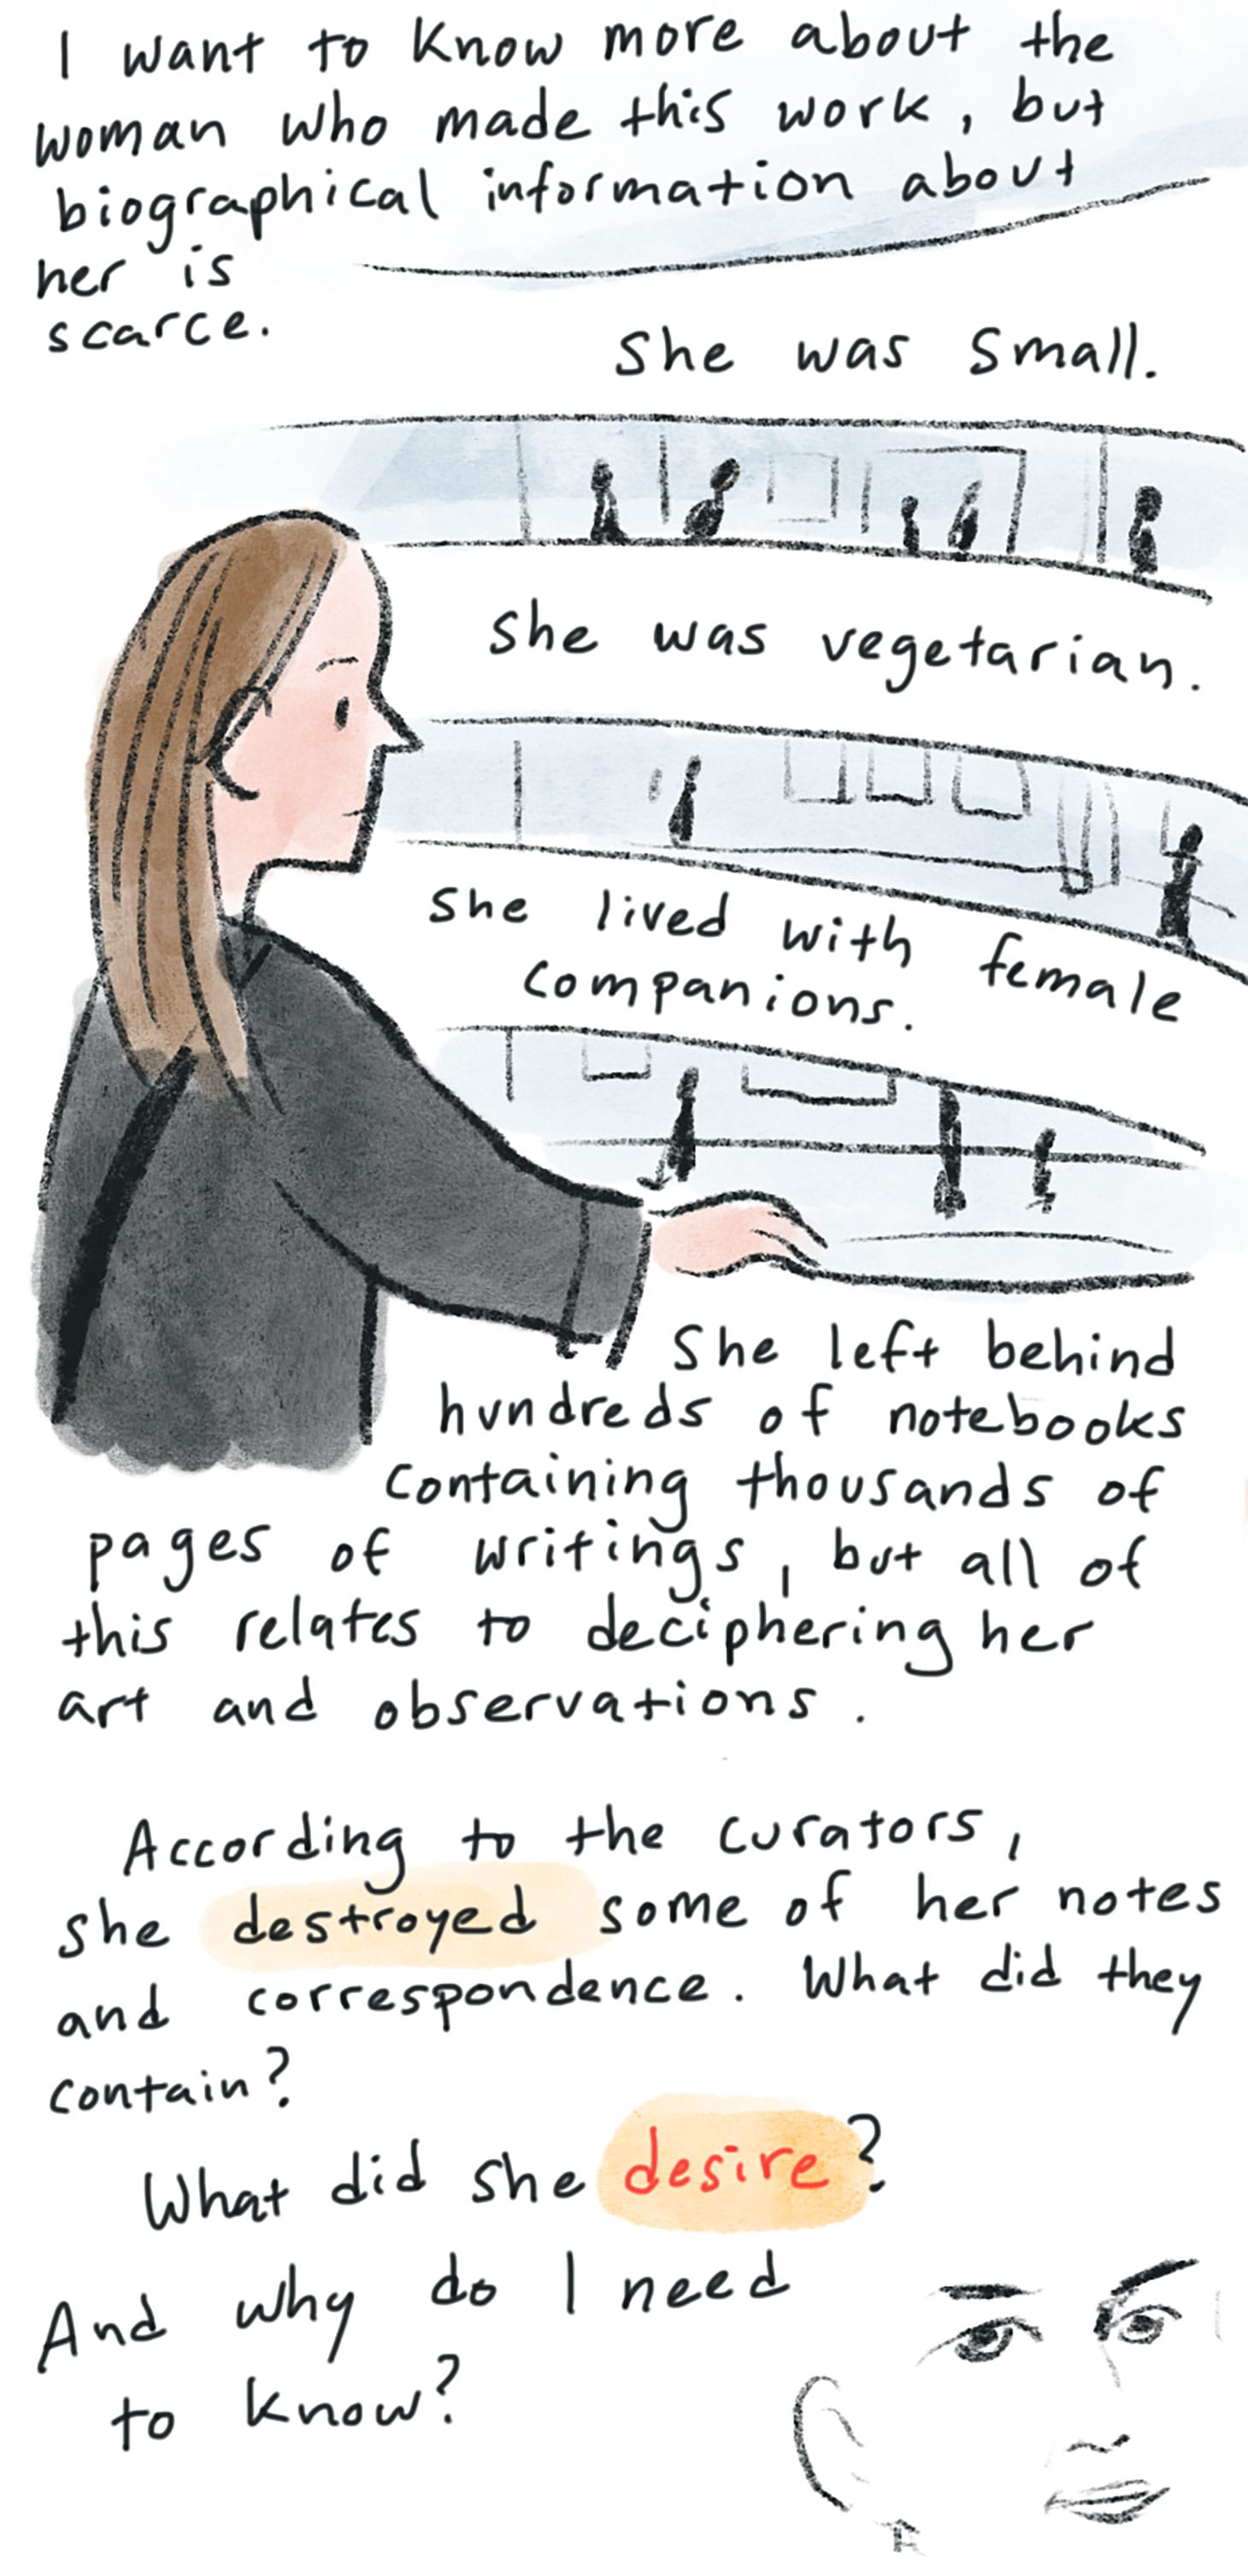 I want to know more about the
woman who made this work, but
biographical information about
her is
scarce.
She was small.
She was vegetarian.
She lived with female
companions.
She left behind
hundreds of notebooks
containing thousands of
pages of writings, but all of
this relates to deciphering her
art and observations.
According to the curators,
she destroyed some of her notes
and correspondence. What did they
contain?
What did she desire?
And why do I need
to know?